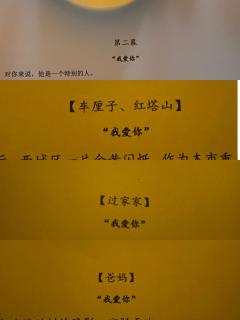 第二幕
“我爱你”
对你来说，他是一个特别的人。
【车厘子、红塔山】
“我爱你”
【过家家】
“我爱你”
【爸妈】
“我爱你”